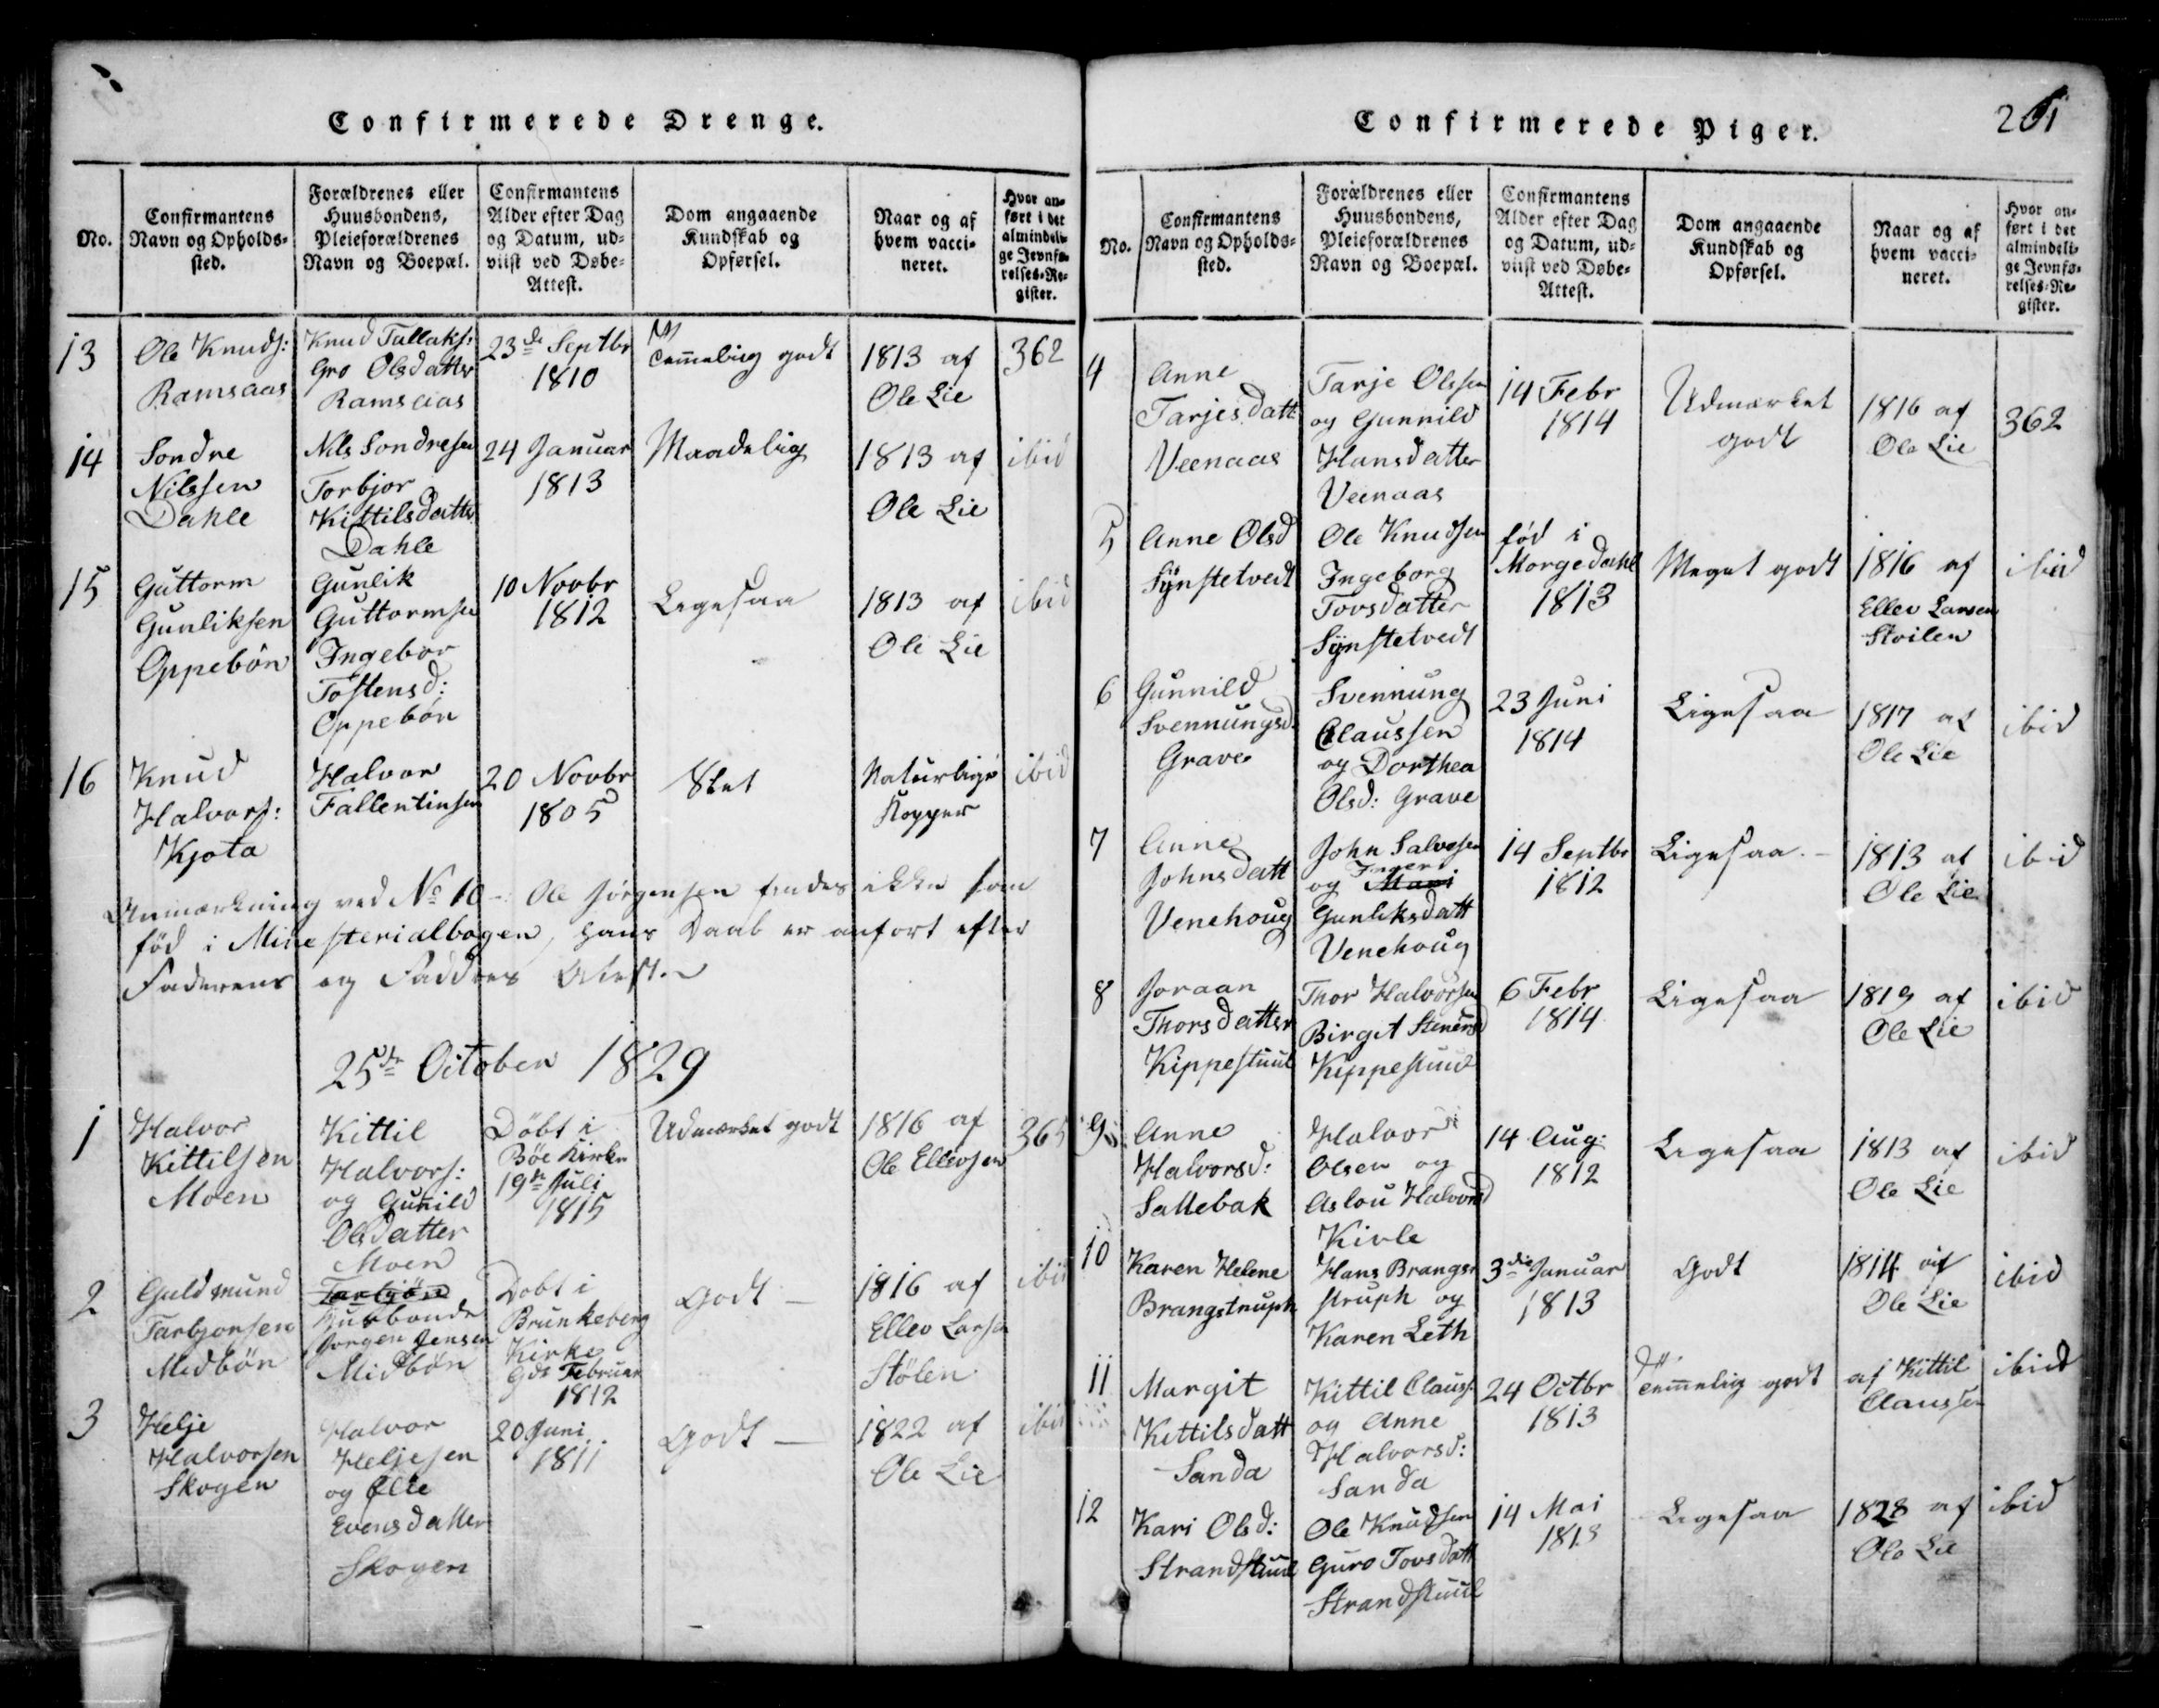 Confirmerede Drenge.
No.
Confirmantens
Navn og Opholds-
sted.
Forældrenes eller
Huusbondens,
Pleieforældrenes
Navn og Boepæl.
Confirmantens
Alder efter Dag
og Datum, ud-
viist ved Døbe-
Attest.
Dom angaaende
Kundskab og
Opførsel.
Naar og af
hvem vacci-
neret.
Hvor an-
ført i det
almindeli-
ge Jevnfø-
relses-Re-
gister.
13
Ole Knuds:
Ramsaas
Knud Tallaks:
Gro Olsdatter
Ramsaas
23de Septbr
1810
Temmelig godt
1813 af
Ole Lie
362
14
Sondre
Nilssen
Dahle
Nils Sondresen
Torbjor
Kittilsdatter
Dahle
24 Januar
1813
Maadelig
1813 af
Ole Lie
ibid
15
Guttorm
Gunliksen
Oppebön
Gunlik
Guttormsen
Ingebor
Tostensd:
Oppebön
10 Novbr
1812
Ligesaa
1813 af
Ole Lie
ibid
16
Knud
Halvors:
Kjota
Halvor
Fallentinsen
20 Novbr
1805
Slet
Naturlige
Kopper
ibid
Anmærkning ved No 10 - Ole Jörgensen findes ikke som
föd i Ministerialbogen, hans Daab er anfört efter
Faderens og Faddres Attest.
25de October 1829
1
Halvor
Kittilsen
Moen
Kittil
Halvors:
og Gunild
Olsdatter
Moen
Döbt i
Böe Kirke
19de Juli
1815
Udmærket godt
1816 af
Ole Ellevsen
365
2
Guldmund
Tarbjorsen
Midbön
Tarbjön
Huusbonde
Jorgen Jensen
Midbön
Dobt i
Brunkeberg
Kirke
9de Februar
1812
Godt
1816 af
Ellev Larsen
Stölen
ibid
3
Helje
Halvorsen
Skogen
Halvor
Heljesen
og
Evensdatter
Skogen
20 Juni
1811
Godt
1822 af
Ole Lie
ibid
Confirmerede Piger.
261
No.
Confirmantens
Navn og Opholds-
sted.
Forældrenes eller
Huusbondens,
Pleieforældrenes
Navn og Boepæl.
Confirmantens
Alder efter Dag
og Datum, ud-
viist ved Døbe-
Attest.
Dom angaaende
Kundskab og
Opførsel.
Naar og af
hvem vacci-
neret.
Hvor an-
ført i det
almindeli-
ge Jevnfø-
relses-Re-
gister.
4
Anne
Tarjesdatt
Veenaas
Tarje Olssen
og Gunnild
Hansdatter
Veenaas
14 Febr
1814
Udmærket
godt
1816 af
Ole Lie
362
5
Anne Olsd
Synstetvedt
Ole Knudsen
Ingeborg
Tovsdatter
Synstetvedt
föd i
Morgedahl
1813
Meget godt
1816 af
Ellev Larsen
Stoilen
ibid
6
Gunnild
Svennungsd.
Grave
Svennung
Claussen
og Dorthea
Olsd: Grave
23 Juni
1814
Ligesaa
1817 af
Ole Lie
ibid
7
Anne
Johnsdatt
Venehoug
John Salvesen
Inger
og Mari
Gunliksdatt
Venehoug
14 Septbr
1812
Ligesaa.
1813 af
Ole Lie
ibid
8
Joraan
Thorsdatter
Kippestuul
Thor Halvorsen
Birgit Stenersd
Kippestuul
6 Febr
1814
Ligesaa
1819 af
Ole Lie
ibid
9
Anne
Halvorsd:
Sallebak
Halvor
Olsen og
Aslou Halvorsd
Kivle
14 Aug:
1812
Ligesaa
1813 af
Ole Lie
ibid
10
Karen Helene
Brangstruph
Hans Brangs-
struph og
Karen Leth
3die Januar
1813
Godt
1814 af
Ole Lie
ibid
11
Margit
Kittilsdatt
Sanda
Kittil Clauss:
og Anne
Halvorsd:
Sanda
24 Octbr
1813
Temmelig godt
af Kittil
Claussen
ibid
12
Kari Olsd:
Strandstuul
Ole Knudsen
Guro Tovsdatt
Strandstuul
14 Mai
1813
Ligesaa
1828 af
Ole Lie
ibid